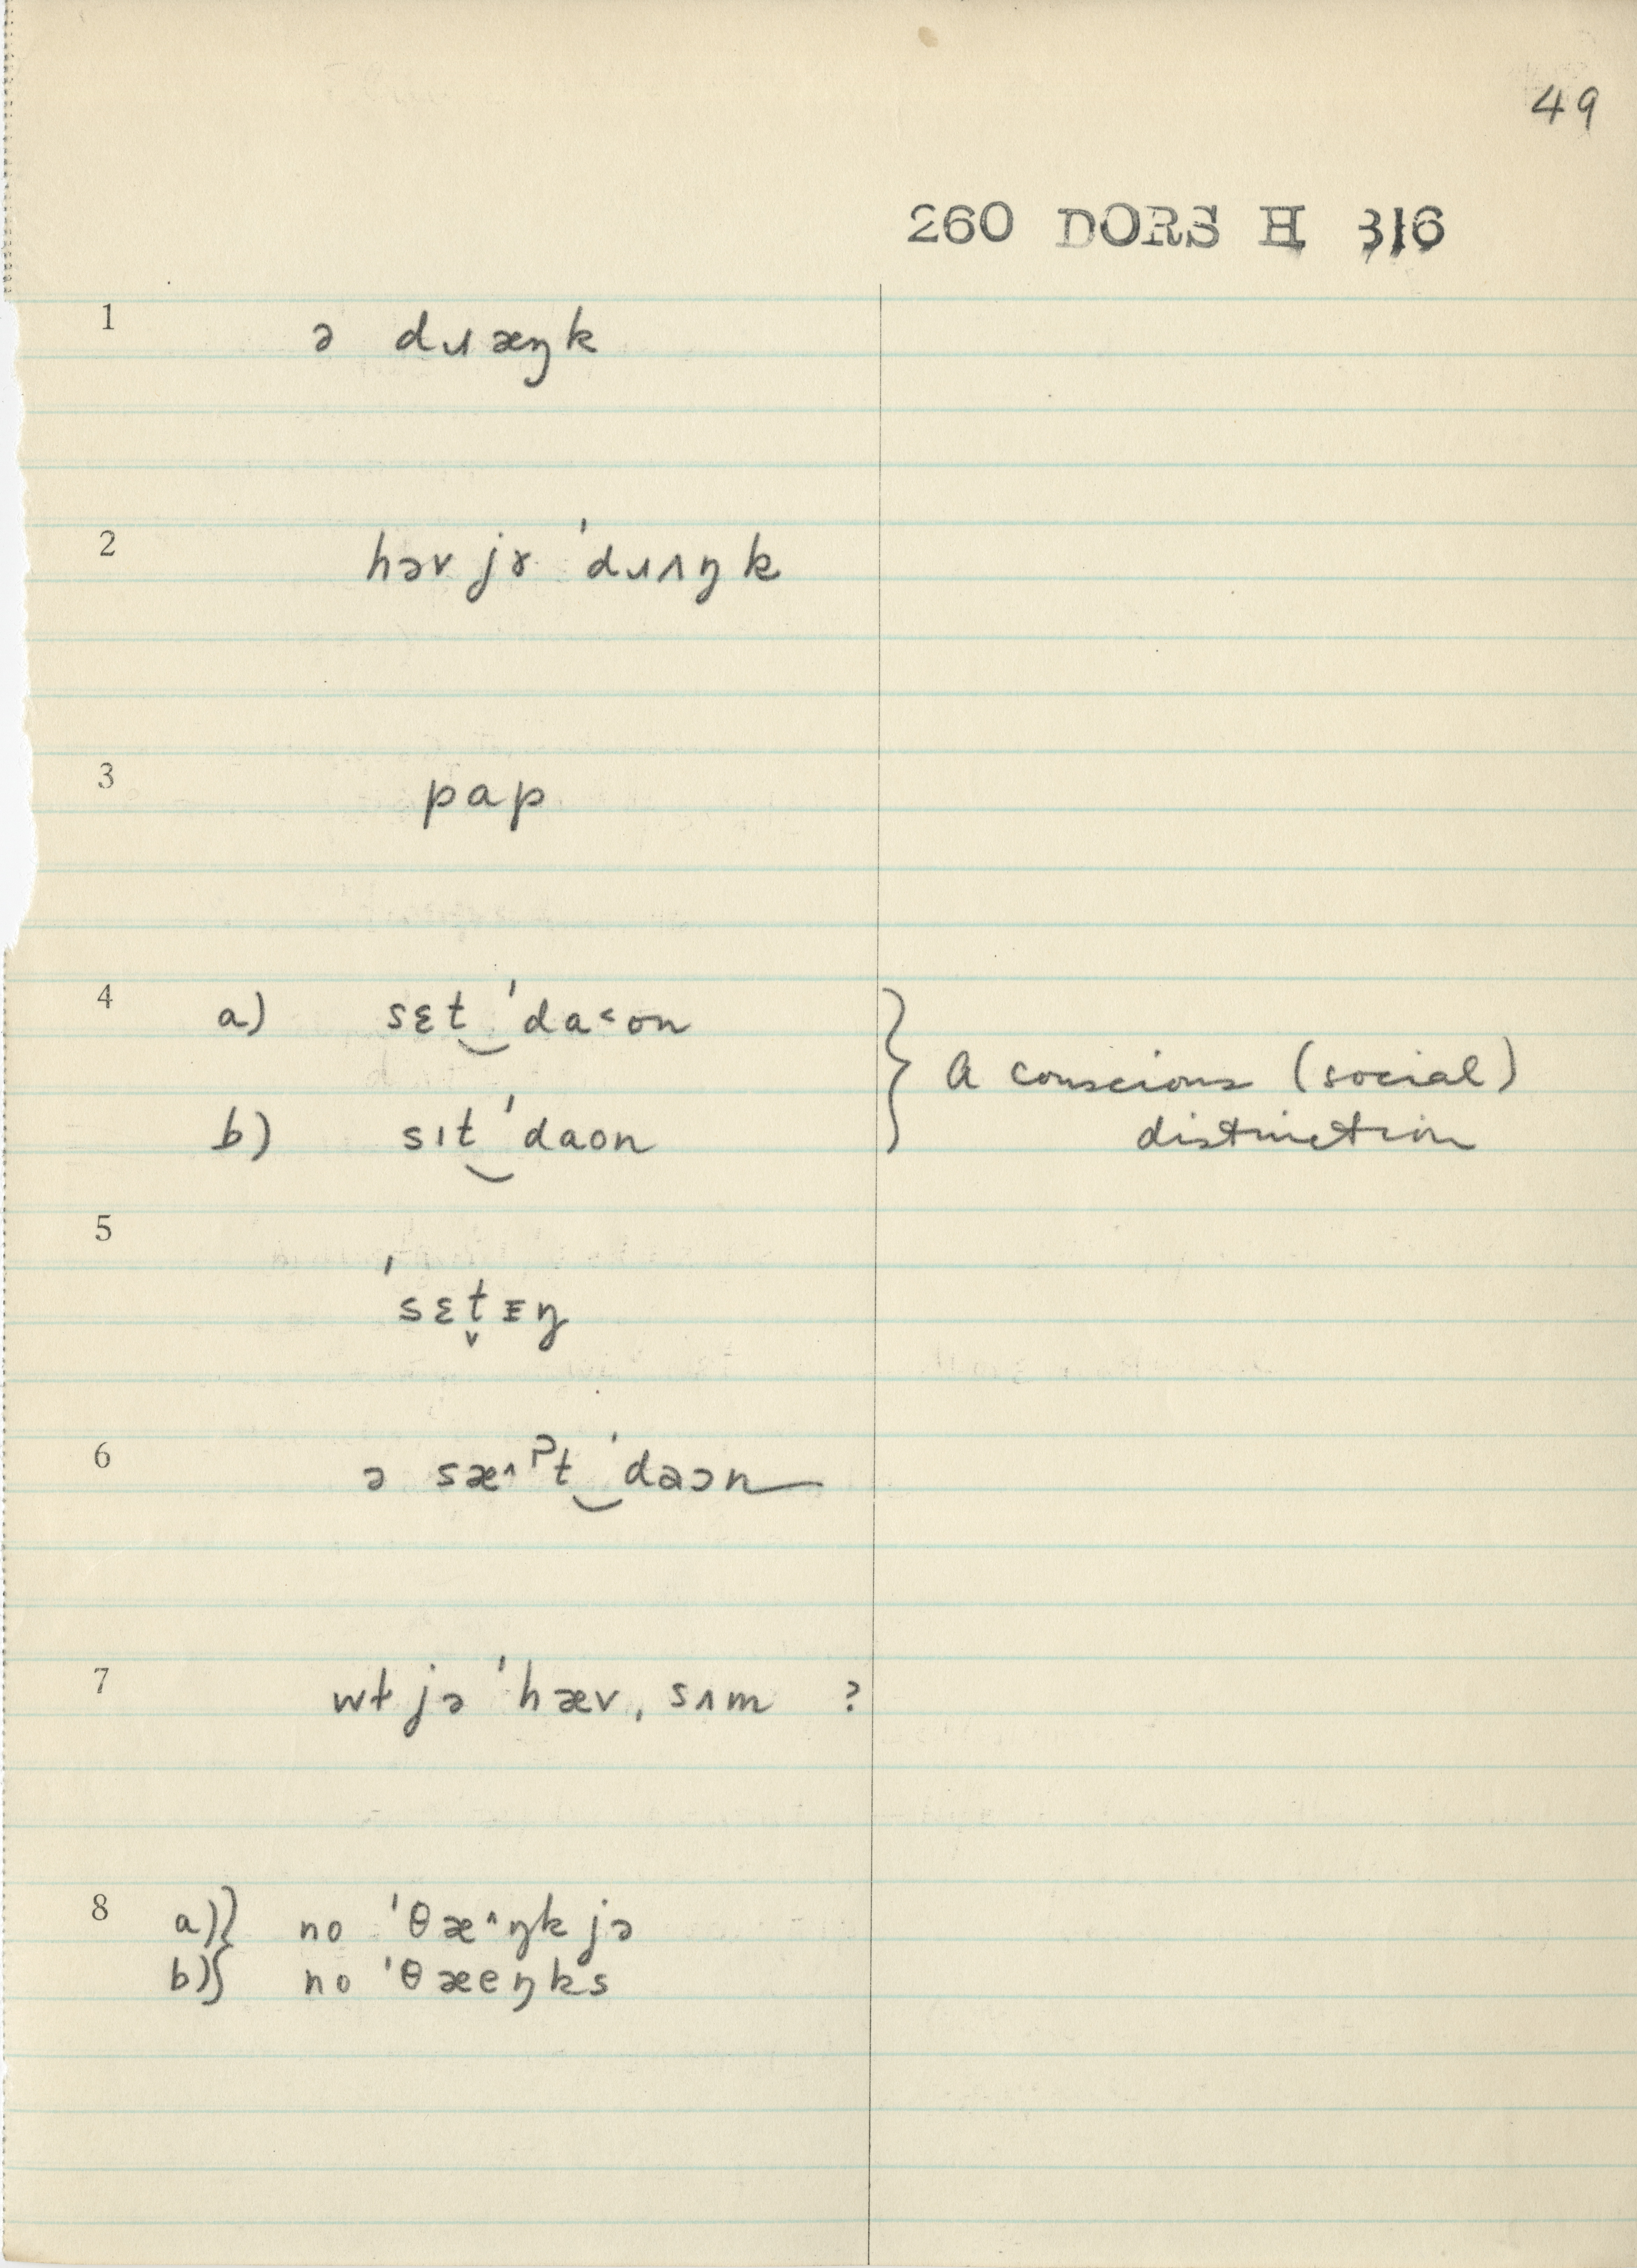 49
260 DORS H 316
1 ə dɹæŋk
2 həv jɤ ˈdɹʌŋk
3 pap
4 a) sɛt‿ˈda˂on } A conscious (social)
b) sɪt‿ˈdaon distinction
5 ˈsɛt̬ᵻŋ
6 ə sæ^ˀt‿ˈdaɔn
7 wt jə ˈhæv, sʌm ?
8 a)} no ˈθæ^ŋk jə
b)} no ˈθæeŋks